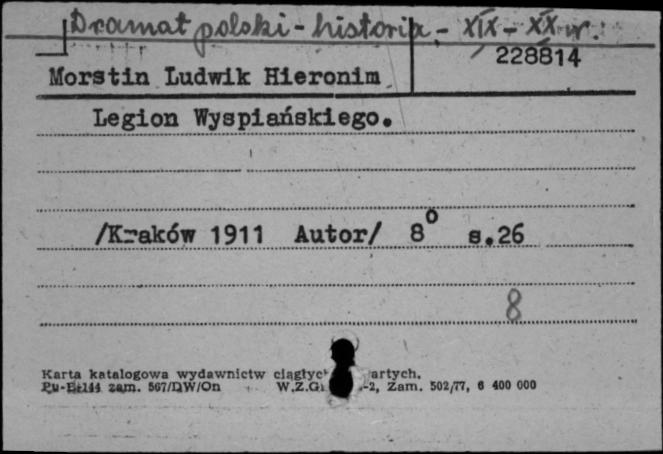 Dramat polski - historia - XIX - XX w.
228814
Morstin Ludwik Hieronim
Legion Wyspiańskiego.
/Kraków 1911 Autor/ 8° s.26
8
Karta katalogowa wydawnictw artych.
zam. 567/DW/On W.Z.G -2, Zam. 502/77, 6 400 000